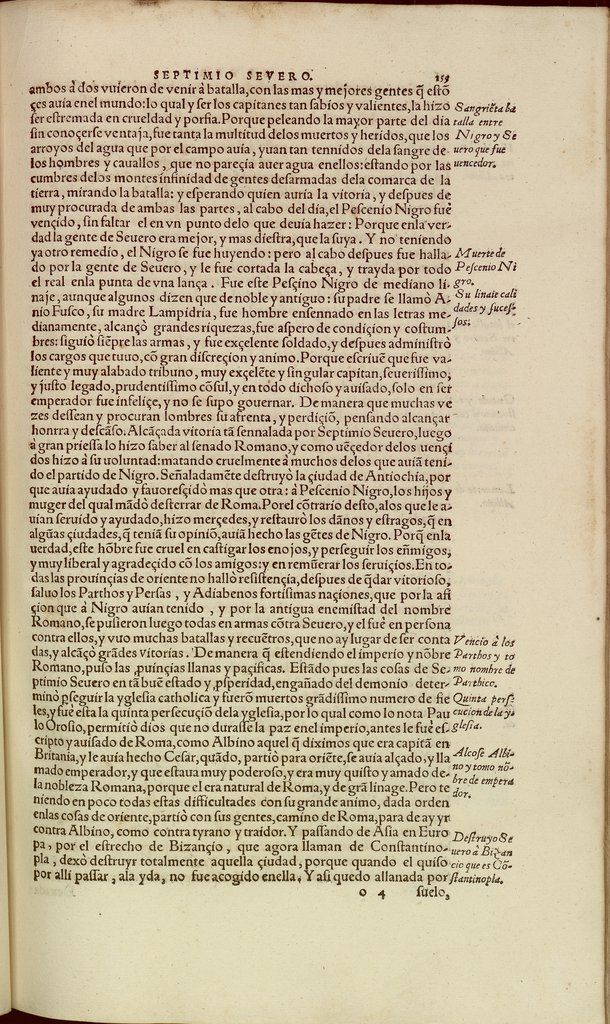 SEPTIMIO SEVERO.
159
ambos à dos vuieron de venir à batalla, con las mas y mejores gentes q̃ estõ
çes auia enel mundo: lo qual y ser los capitanes tan sabios y valientes, la hizo
ser estremada en crueldad y porfia. Porque peleando la mayor parte del dia
sin conoçerse ventaja, fue tanta la multitud delos muertos y heridos, que los
arroyos del agua que por el campo auia, yuan tan tennidos dela sangre de-
los hombres y cauallos, que no pareçia auer agua enellos: estando por las
cumbres delos montes infinidad de gentes desarmadas dela comarca de la
tierra, mirando la batalla: y esperando quien auria la vitoria, y despues de
muy procurada de ambas las partes, al cabo del dia, el Pescenio Nigro fue
vençido, sin faltar el en vn punto delo que deuia hazer: Porque enla ver-
dad la gente de Seuero era mejor, y mas diestra, que la suya. Y no teniendo
ya otro remedio, el Nigro se fue huyendo: pero al cabo despues fue halla-
do por la gente de Seuero, y le fue cortada la cabeça, y trayda por todo
el real enla punta de vna lança. Fue este Pesçino Nigro de mediano li-
naje, aunque algunos dizen que de noble y antiguo: su padre se llamò A-
nio Fusco, su madre Lampidria, fue hombre ensennado en las letras me-
dianamente, alcançò grandes riquezas, fue aspero de condiçion y costum-
bres: siguiò siẽpre las armas, y fue exçelente soldado, y despues administrò
los cargos que tuuo, cõ gran discreçion y animo. Porque escriuẽ que fue va-
liente y muy alabado tribuno, muy exçelẽte y singular capitan, seuerissimo,
y justo legado, prudentissimo cõsul, y en todo dichoso y auisado, solo en ser
emperador fue infeliçe, y no se supo gouernar. De manera que muchas ve
zes dessean y procuran lombres su afrenta, y perdiçiõ, pensando alcançar
honrra y descãso. Alcãçada vitoria tã sennalada por Septimio Seuero, luego
à gran priessa lo hizo saber al senado Romano, y como uẽçedor delos uençi
dos hizo à su uoluntad: matando cruelmente à muchos delos que auiã teni-
do el partido de Nigro. Señaladamẽte destruyò la çiudad de Antiochia, por
que auia ayudado y fauoresçidò mas que otra: à Pescenio Nigro, los hijos y
muger del qual mãdò desterrar de Roma. Porel cõtrario desto, alos que le a-
uian seruido y ayudado, hizo merçedes, y restaurò los dãnos y estragos, q̃ en
algũas çiudades, q̃ teniã su opiniõ, auiã hecho las gẽtes de Nigro. Porq̃ enla
uerdad, este hõbre fue cruel en castigar los enojos, y perseguir los eñmigos,
y muy liberal y agradeçido cõ los amigos: y en remũerar los seruiçios. En to-
das las prouinçias de oriente no hallò resistençia, despues de q̃dar vitorioso,
saluo los Parthos y Persas, y Adiabenos fortissimas naçiones, que por la afi
çion que à Nigro auian tenido, y por la antigua enemistad del nombre
Romano, se pusieron luego todas en armas cõtra Seuero, y el fue en persona
contra ellos, y vuo muchas batallas y recuẽtros, que no ay lugar de ser conta
das, y alcãçò grãdes vitorias. De manera q̃ estendiendo el imperio y nõbre
Romano, puso las ꝓuinçias llanas y paçificas. Estãdo pues las cosas de Se-
ptimio Seuero en tã buẽ estado y, ꝓsperidad, engañado del demonio deter-
minò ꝑseguir la yglesia catholica y fuerõ muertos grãdissimo numero de fie
les, y fue esta la quinta persecuçiõ dela yglesia, por lo qual como lo nota Pau
lo Orosio, permitiò dios que no durasse la paz enel imperio, antes le fue es-
cripto y auisado de Roma, como Albino aquel q̃ diximos que era capitã en
Britania, y le auia hecho Cesar, quãdo, partiò para oriẽte, se auia alçado, y lla
mado emperador, y que estaua muy poderoso, y era muy quisto y amado de-
la nobleza Romana, porque el era natural de Roma, y de grã linage. Pero te
niendo en poco todas estas difficultades con su grande animo, dada orden
enlas cosas de oriente, partiò con sus gentes, camino de Roma, para de ay yr
contra Albino, como contra tyrano y traidor. Y passando de Asia en Euro
pa, por el estrecho de Bizançio, que agora llaman de Constantino-
pla, dexò destruyr totalmente aquella çiudad, porque quando el quiso
por alli passar, ala yda, no fue acogido enella. Y asi quedo allanada por
o 4
suelo,
Sangriẽta ba
talla entre
Nigro y Se
uero que fue
uencedor.
Muerte de
Pescenio Ni
gro.
Su linaie cali
dades y suces-
sos.
Vencio à los
Parthos y to
mo nombre de
Parthico.
Quinta perse
cucion de la y-
glesia.
Alçose Albi-
no y tomo nõ-
bre de empera
dor.
Destruyo Se
uero à Bizan
cio que es Cõ-
stantinopla.